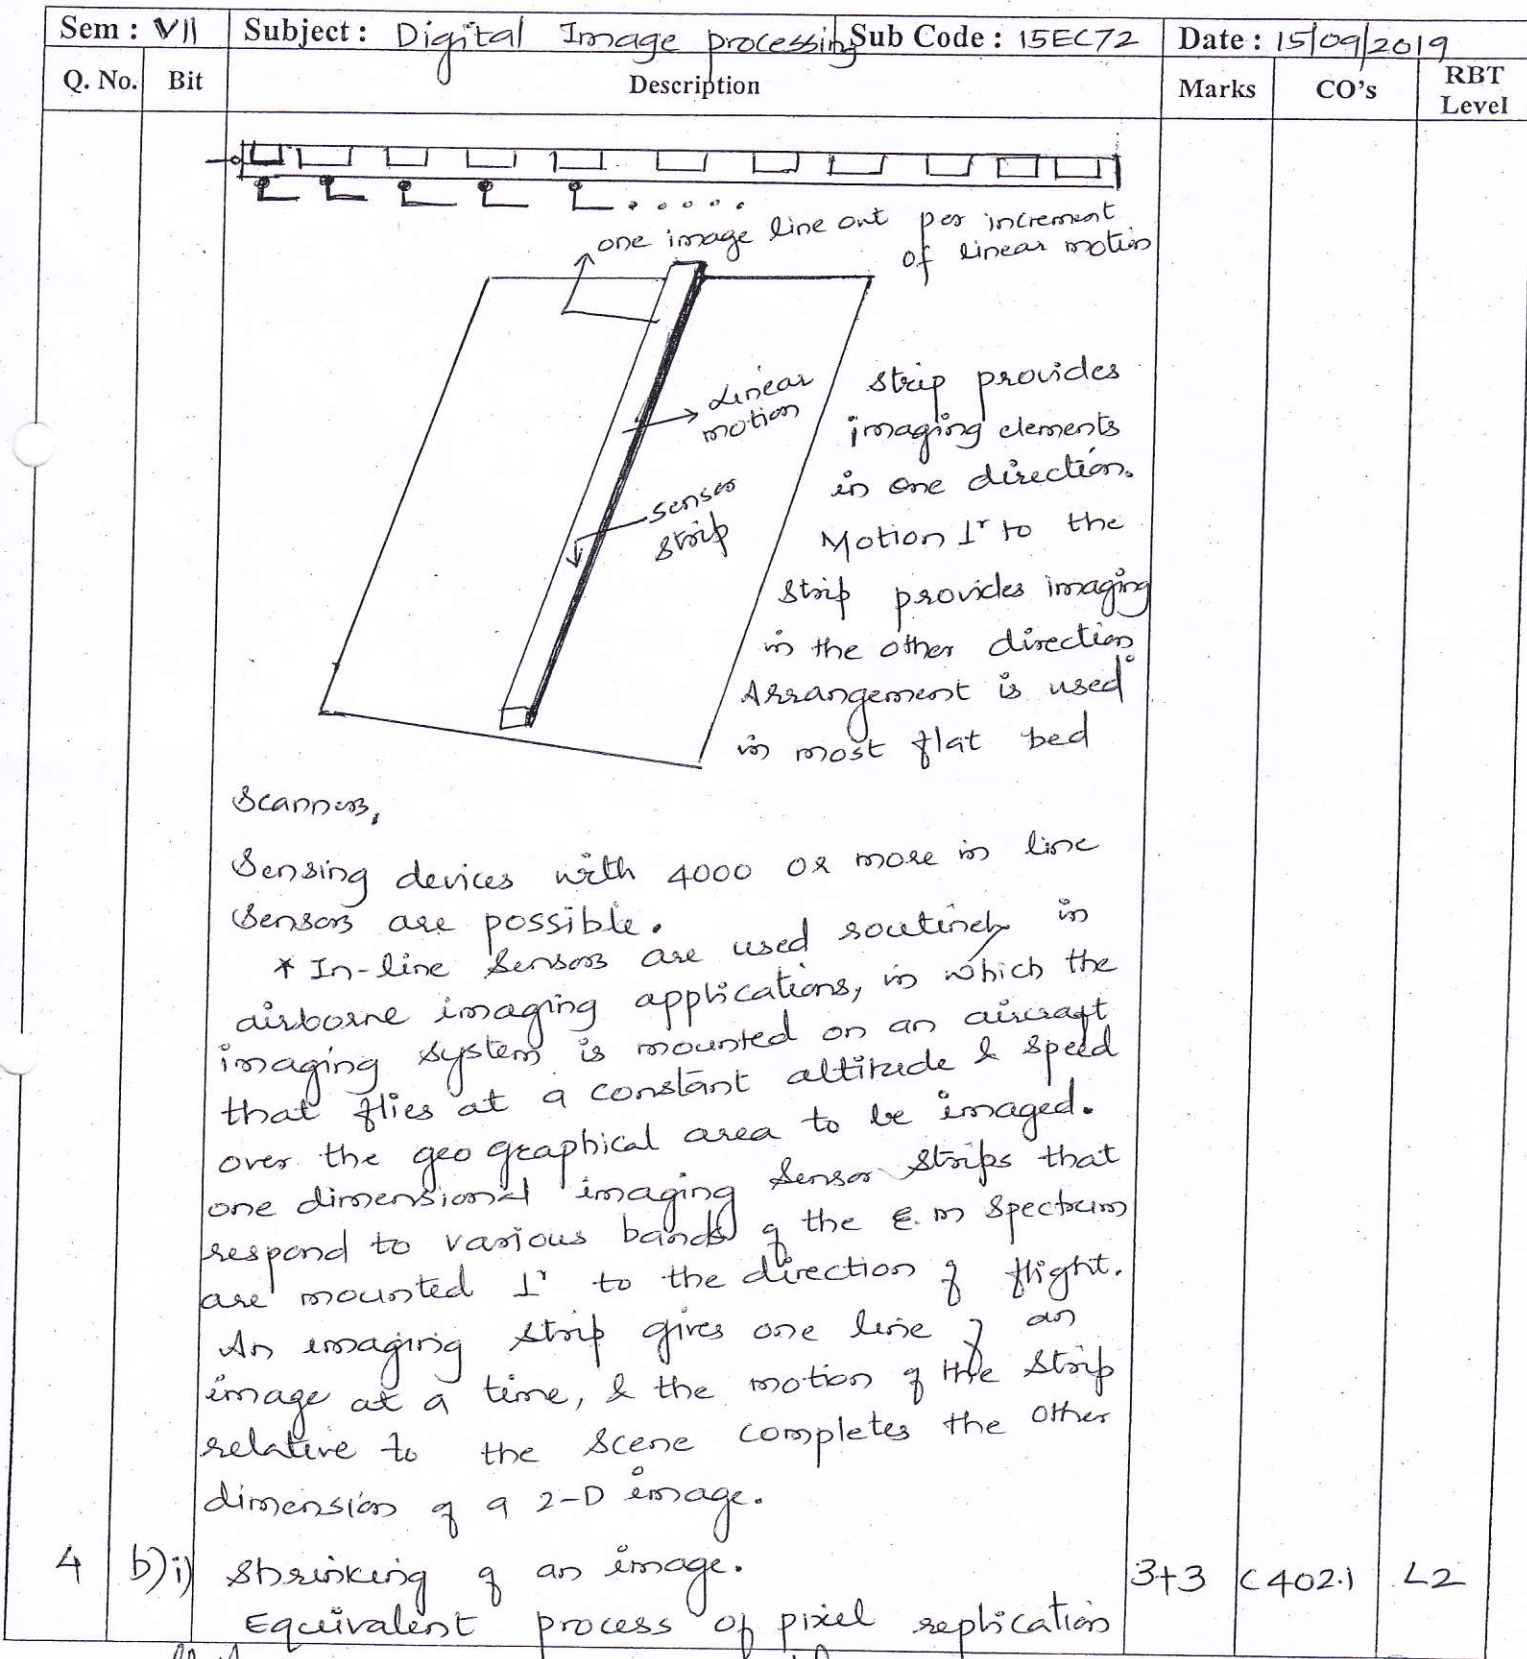 Sem : VII Subject : Digital Image processing Sub Code : 15EC72 Date : 15/09/2019
Q. No. Bit Description Marks CO's RBT Level
one image line out per increment
of linear motion
Linear
motion
sensor
strip
strip provides
imaging elements
in one direction.
Motion ⊥r to the
strip provides imaging
in the other direction.
Arrangement is used
in most flat bed
Scanners,
Sensing devices with 4000 or more in line
Sensors are possible.
* In-line Sensors are used routinely in
airborne imaging applications, in which the
imaging system is mounted on an aircraft
that flies at a constant altitude & speed
over the geo graphical area to be imaged.
one dimensional imaging Sensor strips that
respond to various bands of the E.m Spectrum
are mounted ⊥r to the direction of flight.
An imaging strip gives one line of an
image at a time, & the motion of the strip
relative to the Scene completes the other
dimension of a 2-D image.
4 b) i) Shrinking of an image. 3+3 C402.1 L2
Equivalent process of pixel replication